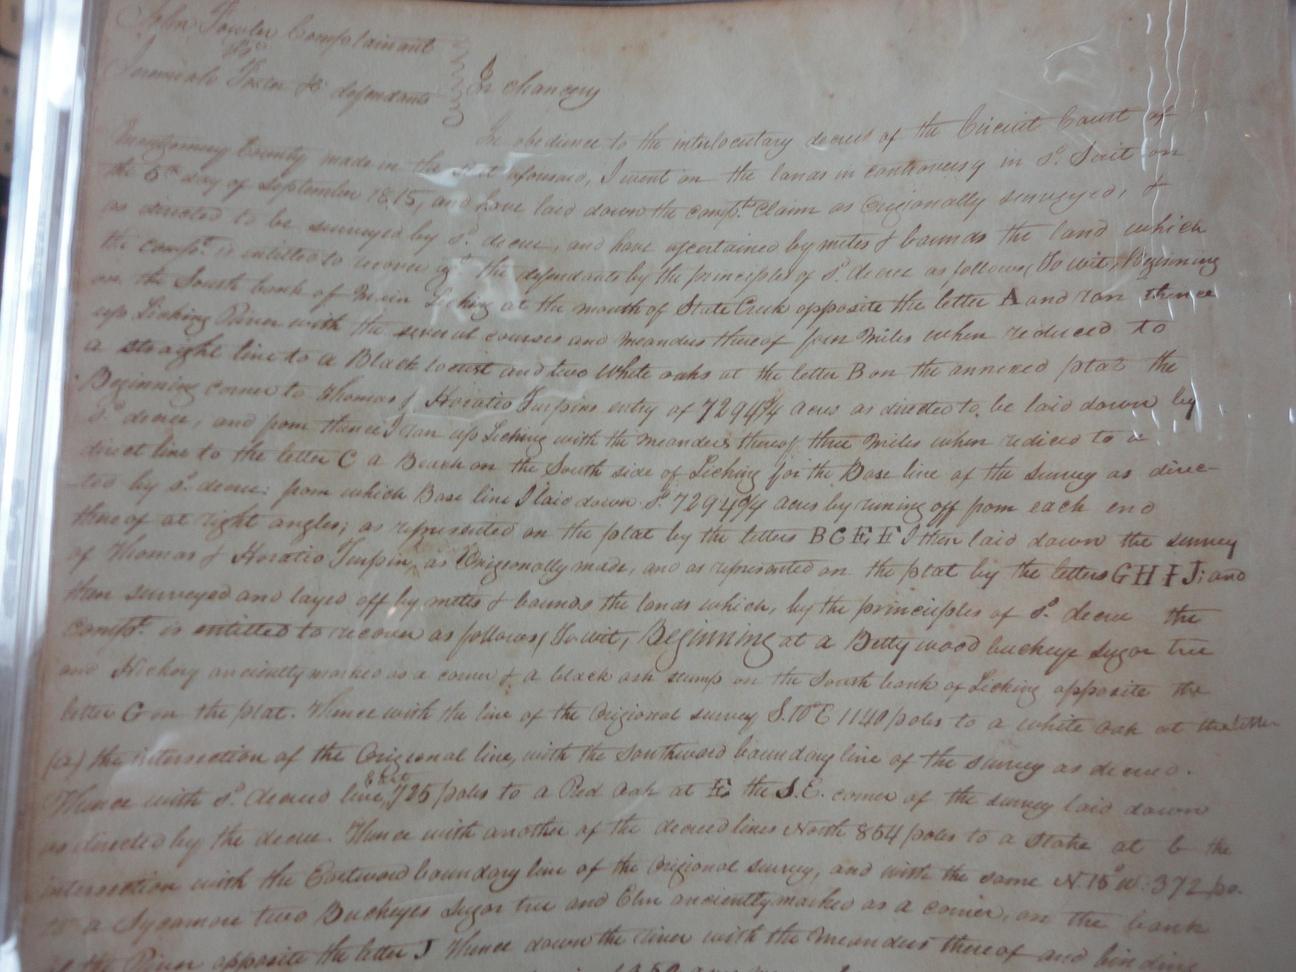 John Fowler Complainant
vs
Jeremiah Foster &c defendants } In chancery
In obedience to the interlocutary decree of the Circuit Court of
Montgomery County made in the Suit aforesaid, I went on the lands in controversy in sd. Suit on
the 5th day of September 1815, and have laid down the compts. Claim as Origionally surveyed, &
as directed to be surveyed by sd. decree, and have ascertained by metes & bounds the land which
the compt. is intitled to recover agt. the defendants by the principles of sd. decree as follows (To wit, Beginning
on the South bank of Main Licking at the mouth of State Creek opposite the letter A and ran thence
up Licking River with the several courses and meanders thereof four Miles when reduced to
a straight line to a Black locust and two White oaks at the letter B on the annexed plat the
Beginning corner to Thomas & Horatio Turpins entry of 7294¾ acres as directed to be laid down by
sd. decree, and from thence I ran up Licking with the meanders thereof three Miles when reduced to a
direct line to the letter C a Beach on the South side of Licking for the Base line of the survey as direc-
ted by sd. decree: from which Base line I laid down sd. 7294¾ acres by runing off from each end
thereof at right angles; as represented on the plat by the letters B C E F I then laid down the survey
of Thomas & Horatio Turpin, as Origeonally made, and as represented on the plat by the letters G H I J; and
then surveyed and layed off by metes & bounds the lands which, by the principles of sd. decree the
compt. is entitled to recover as follows (To wit, Beginning at a Bettywood buckeye sugar tree
and Hickory anciently marked as a corner & a black ash stump on the South bank of Licking opposite the
letter G on the plat. Thence with the line of the Origional survey S. 10° E 1140 poles to a white oak at the letter
(a) the intersection of the Origional line, with the Southward boundary line of the survey as decreed.
Thence with sd. decreed line, East 725 poles to a Red Oak at E the S. E. corner of the survey laid down
as directed by the decree. Thence with another of the decreed lines North 864 poles to a Stake at b the
intersection with the Eastward boundary line of the Origional survey, and with the same N. 15° W. 372 po.
to a Sycamore two Buckeyes Sugar tree and Elm anciently marked as a corner, on the bank
of the River opposite the letter J Thence down the river with the meanders thereof and binding